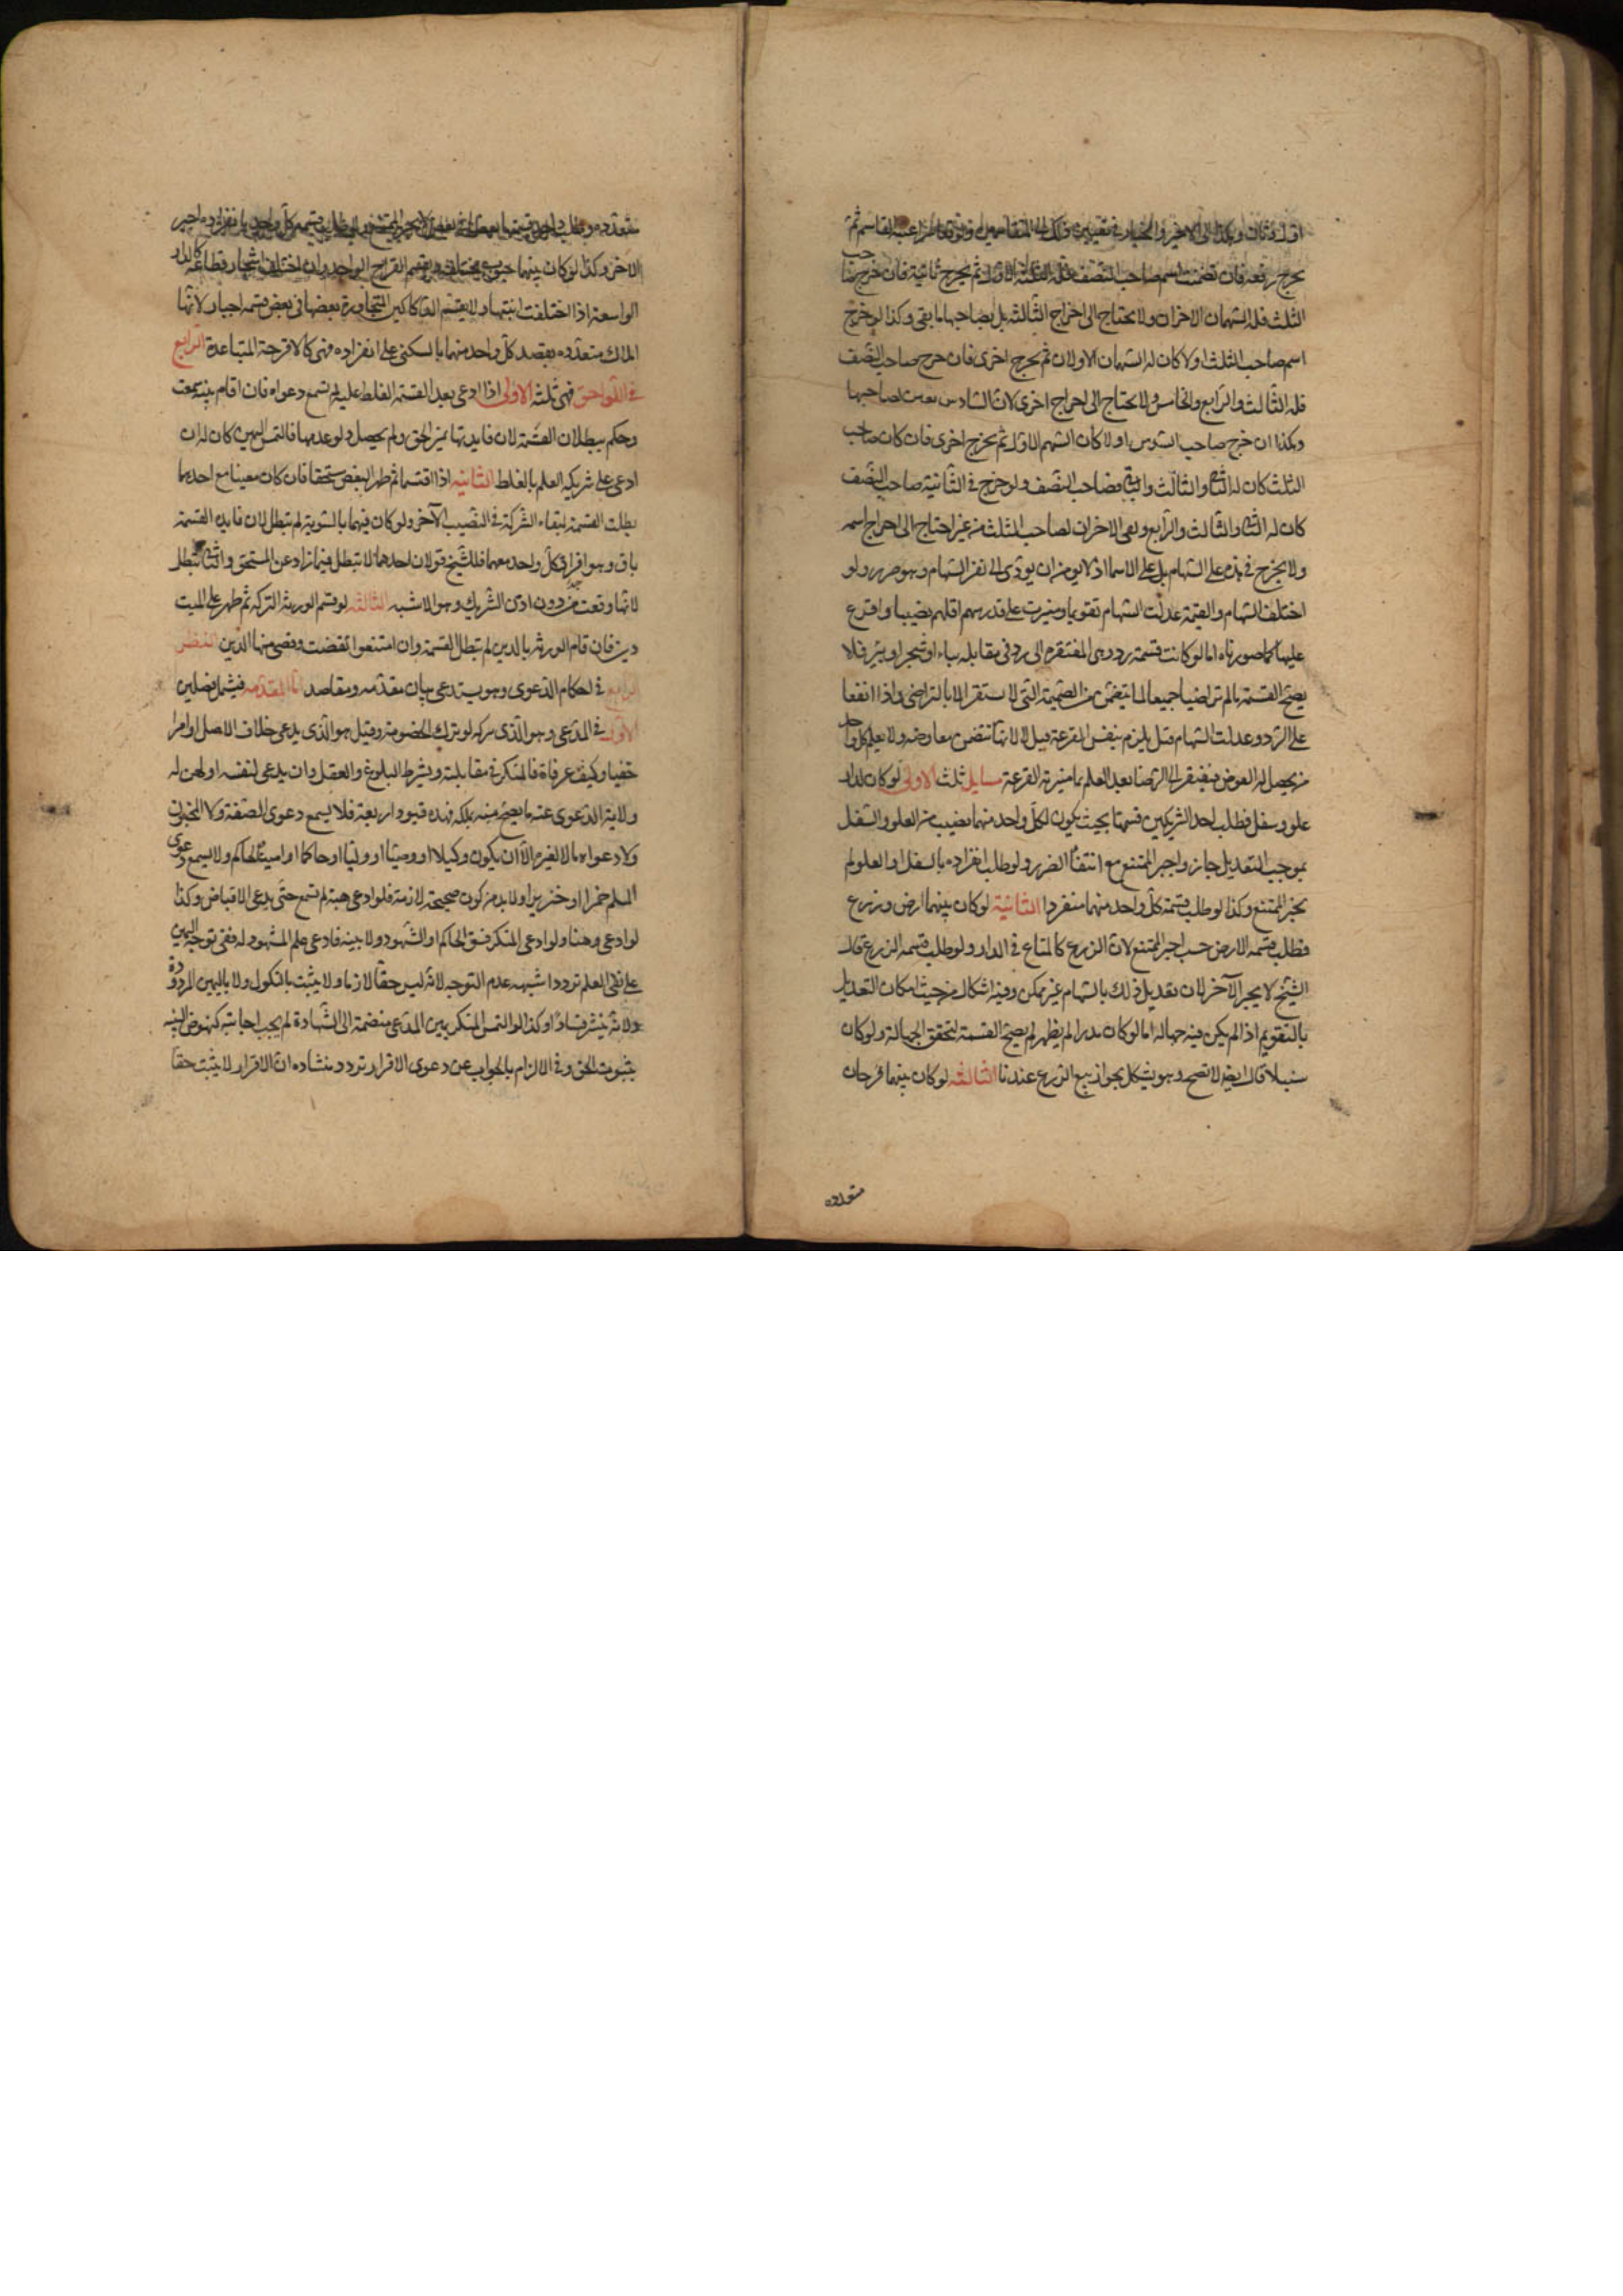 اول وثان وهكذا الى الاخير والخيار في تعيين ذلك الى المتقاسمين او القاسم ثم
يخرج رقعه فان تضمنت اسم صاحب النصف فله الثلثه الاول ثم يخرج ثانية فان خرج صاحب
الثلث فله السهمان الاخران ولا يحتاج الى اخراج الثالثه بل لصاحبها ما بقى وكذا لو خرج
اسم صاحب الثلث اولا كان له السهمان الاولان ثم يخرج اخرى فان خرج صاحب النصف
فله الثالث والرابع والخامس ولا يحتاج الى اخراج اخرى لان السادس تعين لصاحبها
وهكذا ان خرج صاحب السدس اولا كان السهم الاول ثم يخرج اخرى فان كان صاحب
الثلث كان له الثانى والثالث والباقى لصاحب النصف ولو خرج في الثانية صاحب النصف
كان له الثانى والثالث والرابع وبقى الاخران لصاحب الثلث من غير احتياج الى اخراج اسمه
ولا يخرج في هذه على السهام بل على الاسما اذ لا يومن ان يودى الى تفرق السهام وهو ضرر ولو
اختلف السهام والقيمة عدلت السهام تقويما وميزت على قدر سهم اقلهم نصيبا واقرع
عليها كما صورناه اما لو كانت قسمة رد وهى المفتقره الى رد في مقابله بناء او شجر او بئر فلا
يصح القسمة ما لم تراضيا جميعا لما يتضمن من الضميمة التى لا تستقر الا بالتراضى واذا اتفقا
على الرد وعدلت السهام قيل يلزم بنفس القرعة قيل لا لانها تتضمن معاوضه ولا يعلم كل واحد
من يحصل له العوض فيفتقر الى الرضا بعد العلم بما ميزته القرعة مسايل ثلث الاولى لو كان لدار
علو وسفل فطلب احد الشريكين قسمتها بحيث يكون لكل واحد منهما نصيب من العلو والسفل
بموجب التعديل جاز واجبر الممتنع مع انتفاء الضرر ولو طلب انفراده بالسفل او العلو لم
يجبر الممتنع وكذا لو طلب قسمة كل واحد منهما منفردا الثانية لو كان بينهما ارض وزرع
فطلب قسمه الارض حسب اجبر الممتنع لان الزرع كالمتاع في الدار ولو طلب قسمه الزرع قال
الشيخ لا يجبر الآخر لان تعديل ذلك بالسهام غير ممكن وفيه اشكال من حيث امكان التعديل
بالتقويم اذا لم يكن فيه جهاله اما لو كان بذرا لم يظهر لم يصح القسمة لتحقق الجهالة ولو كان
سنبلا قال ايضا لا تصح وهو يشكل بجواز بيع الزرع عندنا الثالثه لو كان بينهما قرحان
متعدده
متعدده وطلب واحد قسمتها بعضها في بعض لم يجبر الممتنع ولو طلب قسمه كل واحد بانفراده اجبر
الاخر وكذا لو كان بينهما حبوب مختلفه ويقسم القراح الواحد وان اختلف اشجار قطاعه كالدار
الواسعة اذا اختلفت ابنيتها ولا يقسم الدكاكين المتجاورة بعضها فى بعض قسمه اجبار لانها
املاك متعدده يقصد كل واحد منهما بالسكنى على انفراده فهى كالاقرحة المتباعدة الرابع
في اللواحق فهى ثلثه الاولى اذا ادعى بعد القسمة الغلط عليه لم تسمع دعواه فان اقام بينه سمعت
وحكم ببطلان القسمة لان فايدتها تميز الحق ولم يحصل ولو عدمها فالتمس اليمين كان له ان
ادعى على شريكه العلم بالغلط الثانيه اذا اقتسما ثم ظهر البعض مستحقا فان كان معينا مع احدهما
بطلت القسمة لبقاء الشركة في النصيب الآخر ولو كان فيهما بالسوية لم تبطل لان فايده القسمة
باق وهو افراز كل واحد منهما فللشيخ قولان احدهما لا تبطل فيما زاد عن المستحق والثانى تبطل
لانها وقعت من دون اذن الشريك وهو الاشبه الثالثه لو قسم الورثه التركه ثم ظهر على الميت
دين فان قام الورثه بالدين لم تبطل القسمة وان امتنعوا نقضت وقضى منها الدين النظر
الرابع في احكام الدعوى وهو يستدعى بيان مقدمه ومقاصد اما المقدمه فيشمل فصلين
الاول في المدعى وهو الذى يترك لو ترك الخصومة وقيل هو الذى يدعى خلاف الاصل او امرا
خفيا وكيف عرفناه فالمنكر في مقابلته ويشترط البلوغ والعقل وان يدعى لنفسه او لمن له
ولاية الدعوى عنه ما يصح منه تملكه فهذه قيود اربعة فلا يسمع دعوى الصغير ولا المجنون
ولا دعواه مالا لغيره الا ان يكون وكيلا او وصيا او وليا او حاكما او امينا لحاكم ولا يسمع دعوى
المسلم خمرا او خنزيرا ولا بد من كون صحيحة لازمة فلو ادعى هبة لم تسمع حتى يدعى الاقباض وكذا
لو ادعى رهنا ولو ادعى المنكر فسق الحاكم او الشهود ولا بينه فادعى علم المشهود له ففى توجه اليمين
على نفى العلم تردد اشبهه عدم التوجه لانه ليس حقا لازما ولا يثبت بالنكول ولا باليمين المردودة
ولانه يثير فسادا وكذا لو التمس المنكر يمين المدعى منضمة الى الشهادة لم يجب اجابته كنهوض البينه
بثبوت الحق وفى الالزام بالجواب عن دعوى الاقرار تردد منشاءه ان الاقرار لا يثبت حقا